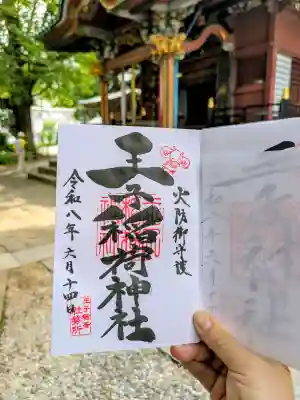 火防御守護
王子稲荷神社
令和八年六月十四日
王子稲荷
社務所